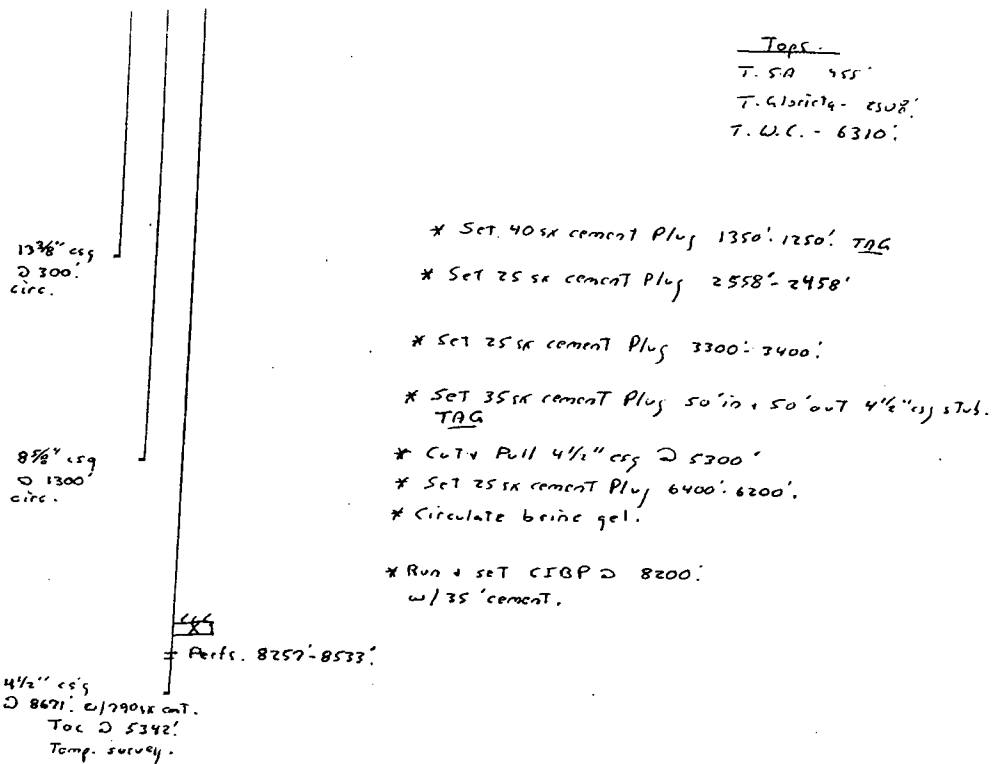 Tops.
T. SA 455'
T. Glorieta - 2508'.
T. W.C. - 6310'.
13 3/8" csg
@ 300'.
circ.
* Set 40 sx cement Plug 1350'-1250'. TAG
* Set 25 sx cement Plug 2558'-2458'
* Set 25 sx cement Plug 3300'-3400'.
* Set 35 sx cement Plug 50' in + 50' out 4 1/2" csg stub.
TAG
8 5/8" csg
@ 1300'
circ.
* Cut + Pull 4 1/2" csg @ 5300'
* Set 25 sx cement Plug 6400'-6200'.
* Circulate brine gel.
* Run + set CIBP @ 8200'.
w/ 35' cement.
Perfs. 8257'-8533'.
4 1/2" csg
@ 8671'. w/ 790 sx cmt.
TOC @ 5342'.
Temp. survey.